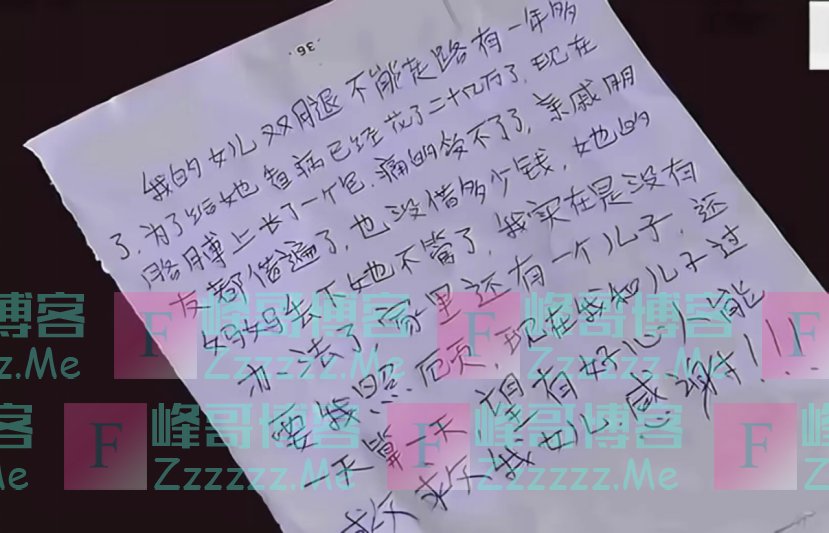 .36.
我的女儿双腿不能走路有一年多
了.为了给她看病已经花了二十几万了.现在
胳膊上长了一个包.痛的受不了了,亲戚朋
友都借遍了,也没借多少钱,她的
妈妈丢下她不管了,我实在是没有
办法了家里还有一个儿子,还
要我照,现在我和儿子过
一天算一天.望有好心人能
救救我女儿感谢!!!
峰哥博客
Zzzzzz.Me
F
峰哥博客
Zzzzzz.Me
F
峰哥博客
z.Me
F
峰哥博客
Zzzzzz.Me
F
峰哥博客
Zzzzzz.Me
F